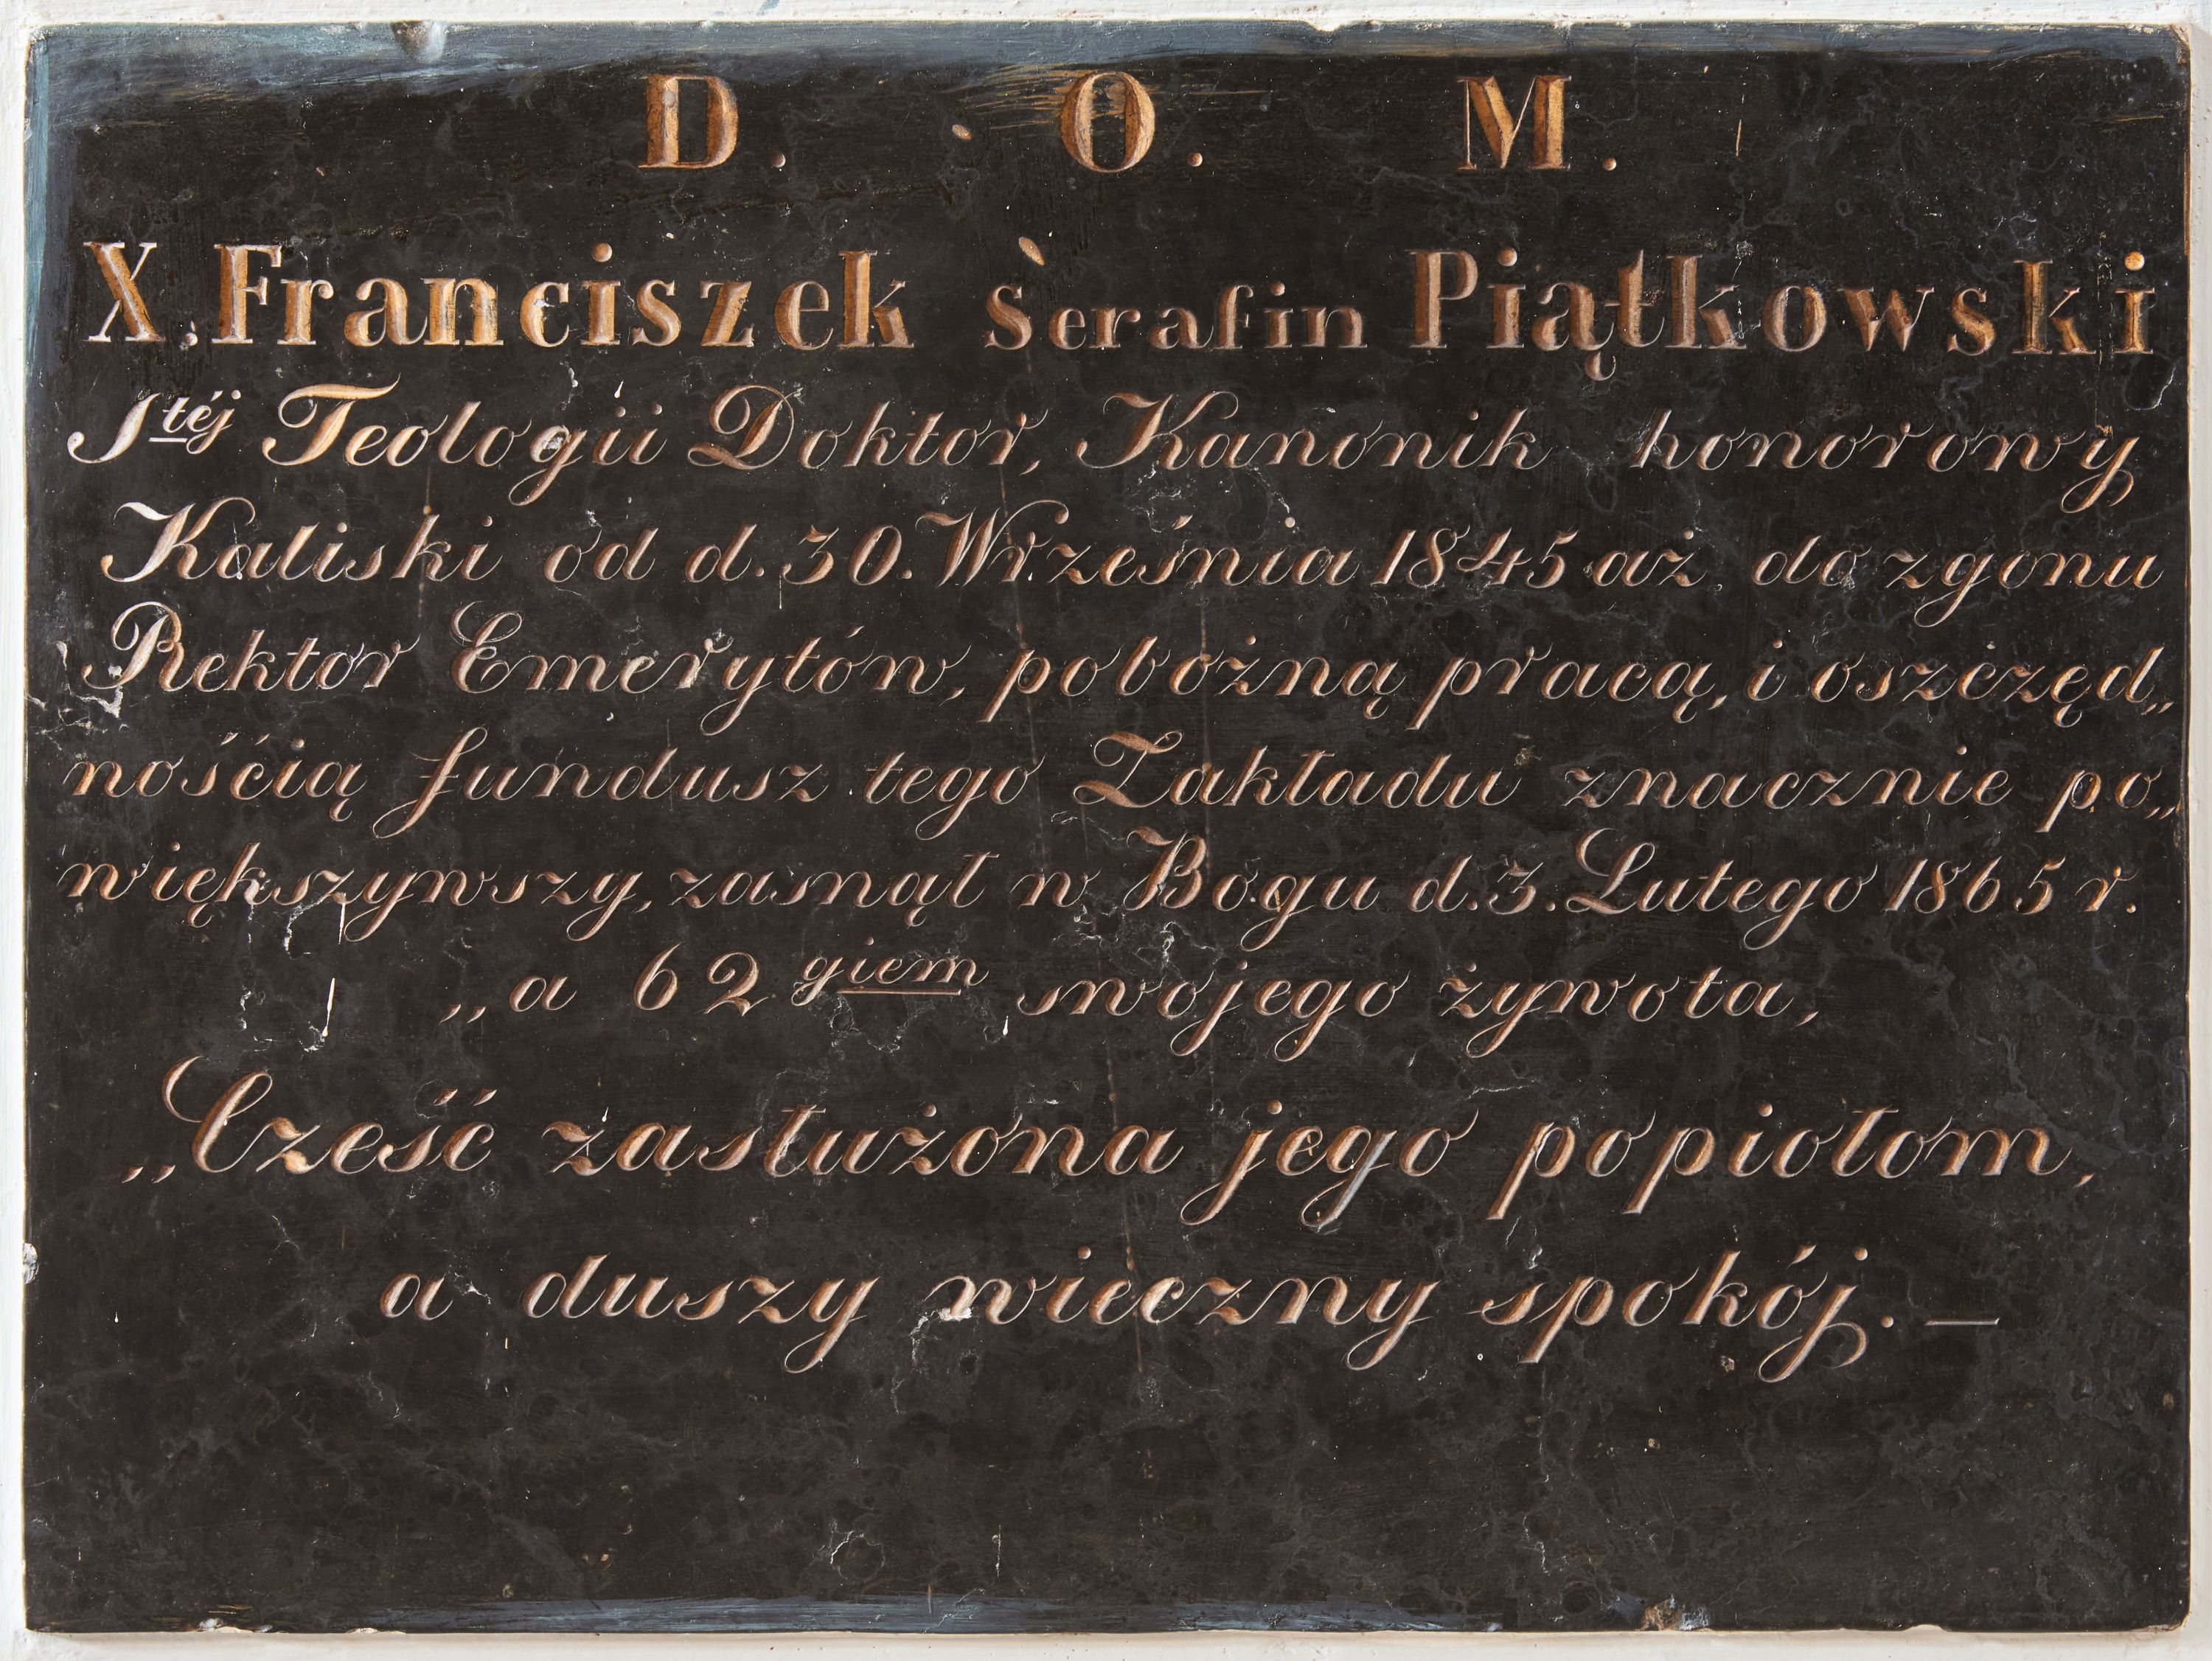 D. O. M.
X. Franciszek Serafin Piątkowski
Stéj Teologii Doktor, Kanonik honorowy
Kaliski od d. 30. Września 1845 aż do zgonu
Rektor Emerytów, pobożną pracą, i oszczęd„
nośćią fundusz tego Zakładu znacznie po„
większywszy, zasnął w Bogu d. 3. Lutego 1865 r.
„a 62 giem swojego żywota,
„Cześć zasłużona jego popiołom,
a duszy wieczny spokój. —